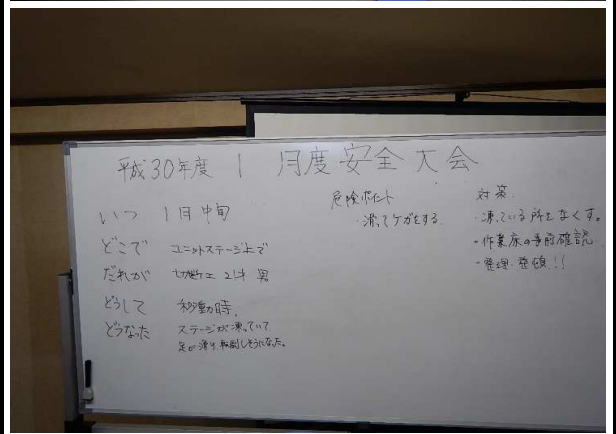 平成30年度 1月度安全大会
いつ 1月中旬
どこで ユニットステージ上で
だれが 切断工 21才 男
どうして 移動時
どうなった ステージが凍っていて
足が滑り、転倒しそうになった。
危険ポイント
・滑ってケガをする
対策
・凍っている所をなくす。
・作業床の事前確認
・整理・整頓!!